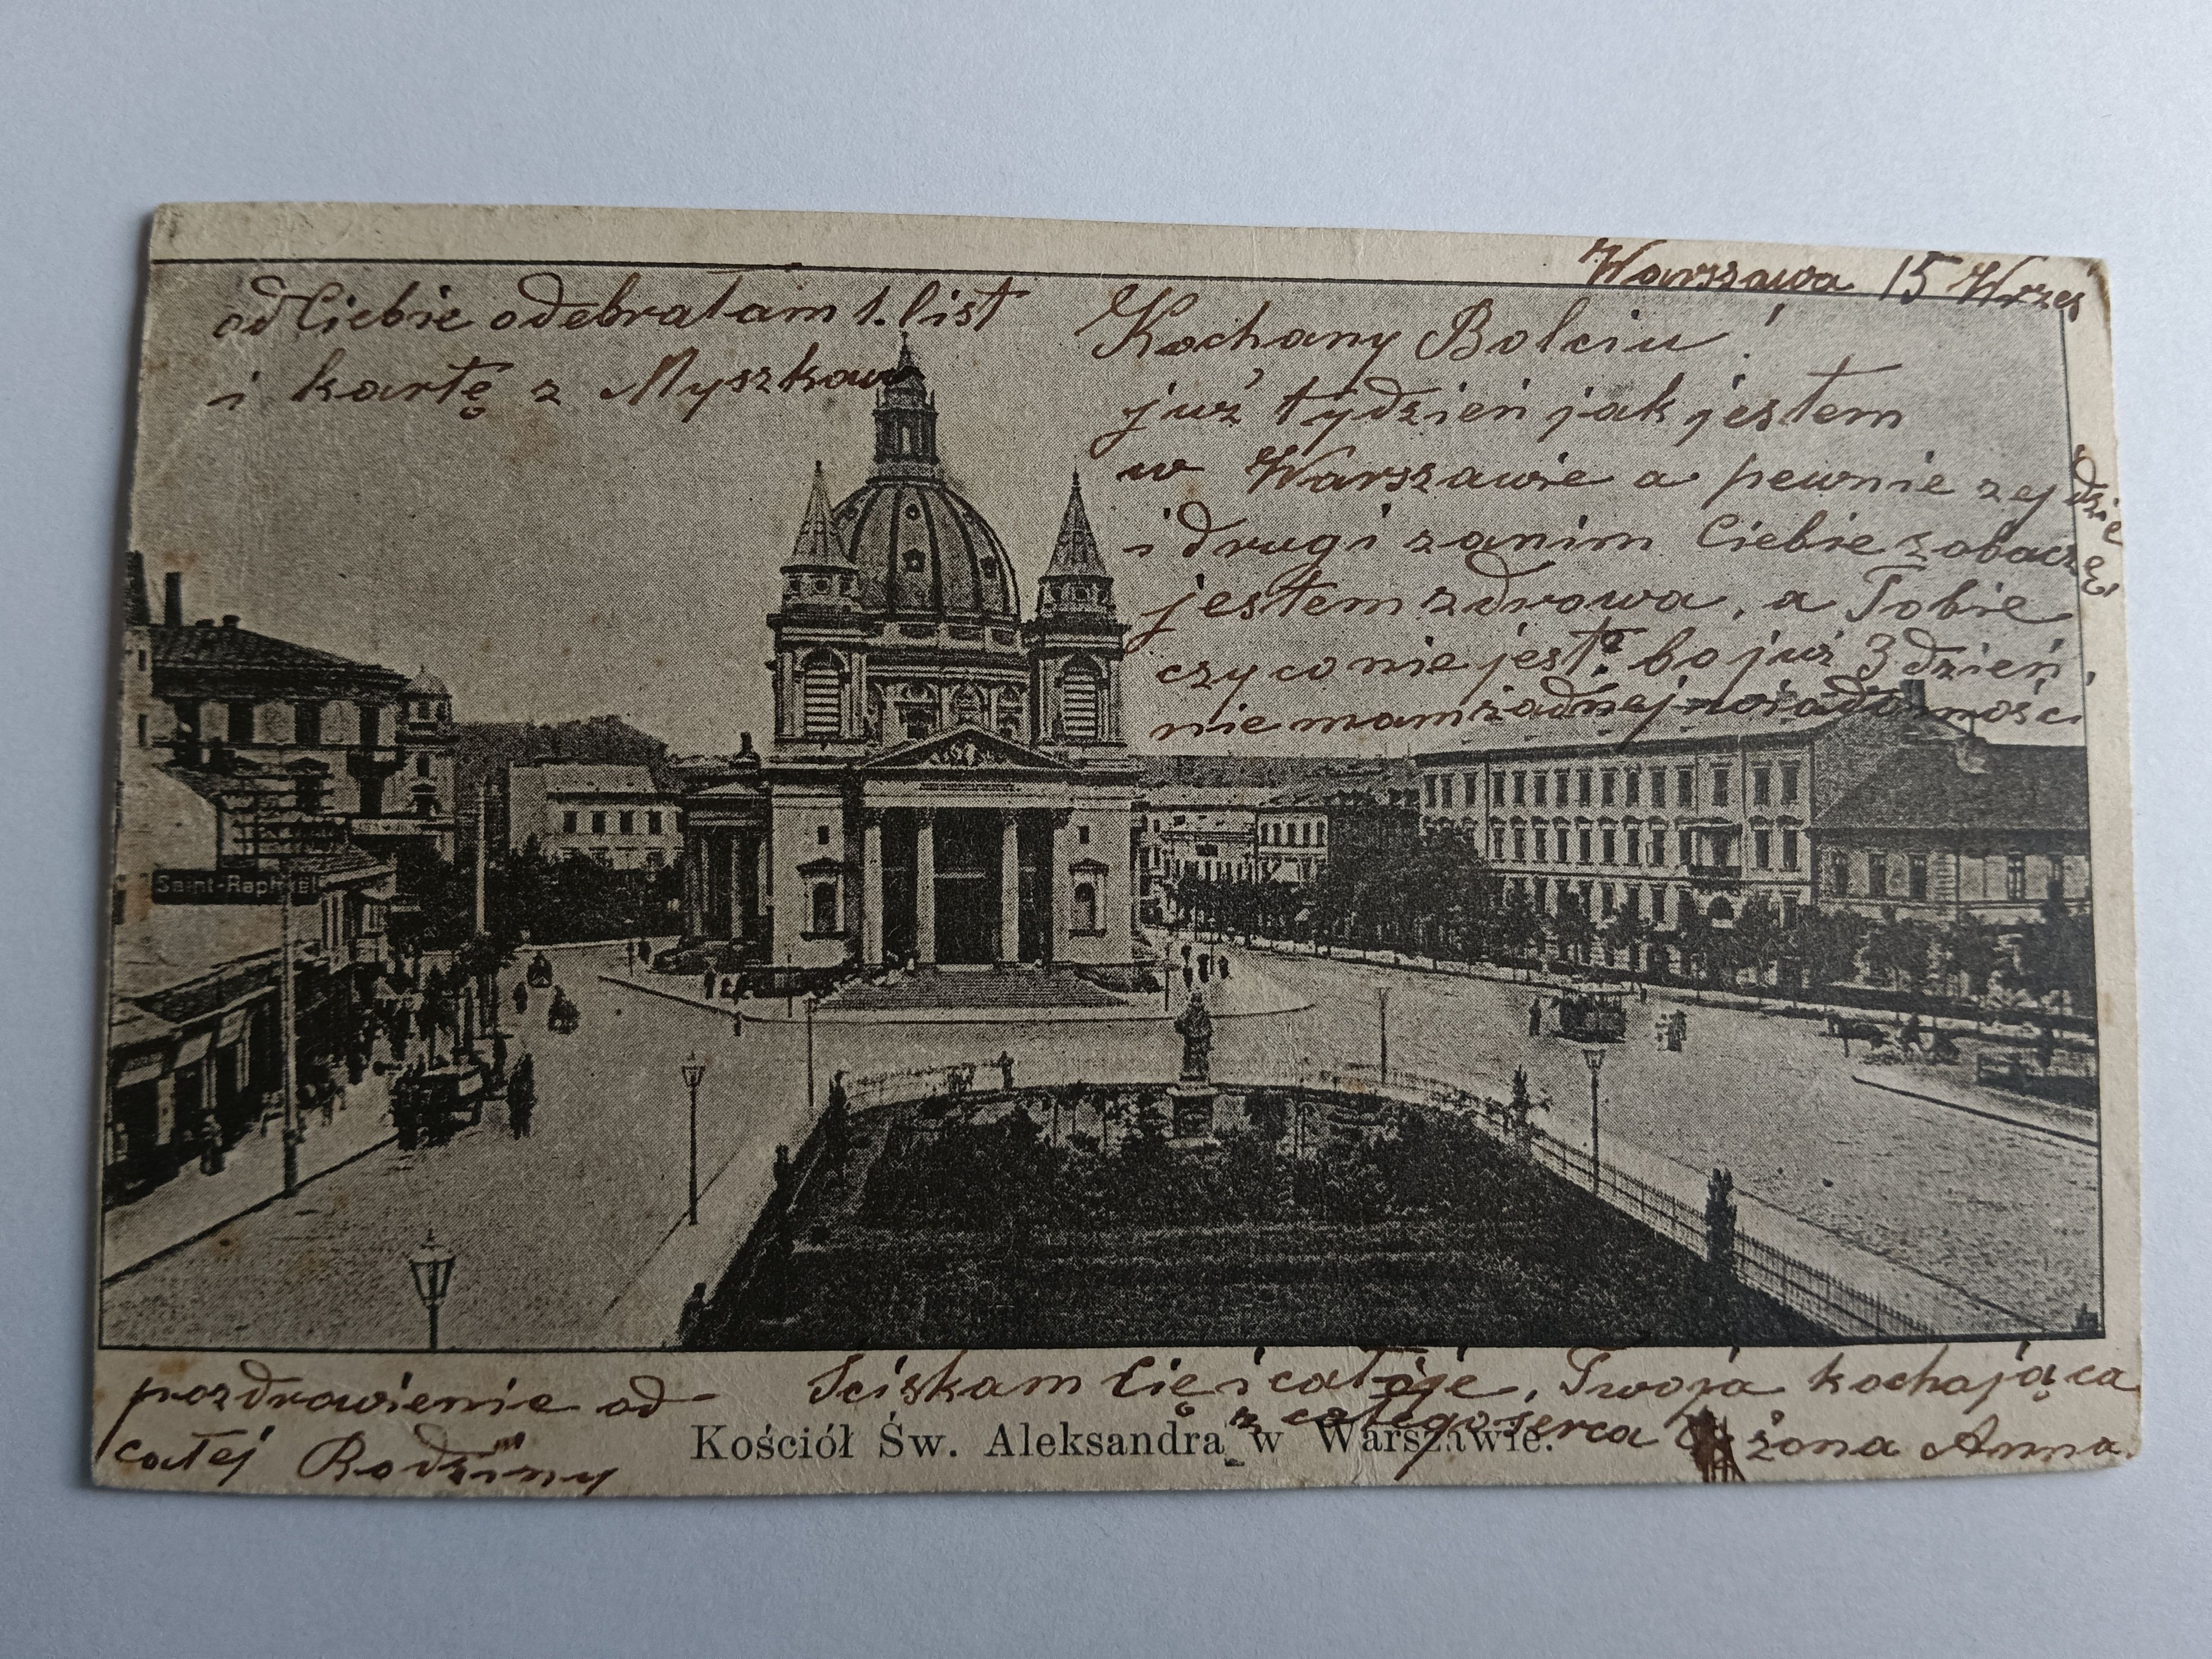 Warszawa 15 Wrzes
Kochany Bolciu!
już tydzień jak jestem
w Warszawie a pewnie zejdzie
i drugi zanim Ciebie zobaczę
jestem zdrowa, a Tobie
czy co nie jest? bo już 3 dzień
nie mam żadnej wiadomości
od Ciebie odebrałam 1. list
i kartę z Myszkowa
Saint-Raphael
pozdrowienie od
całej Rodziny
Sciskam Cię i całuję, Twoja kochająca
z całego serca żona Anna
Kościół Św. Aleksandra w Warszawie.